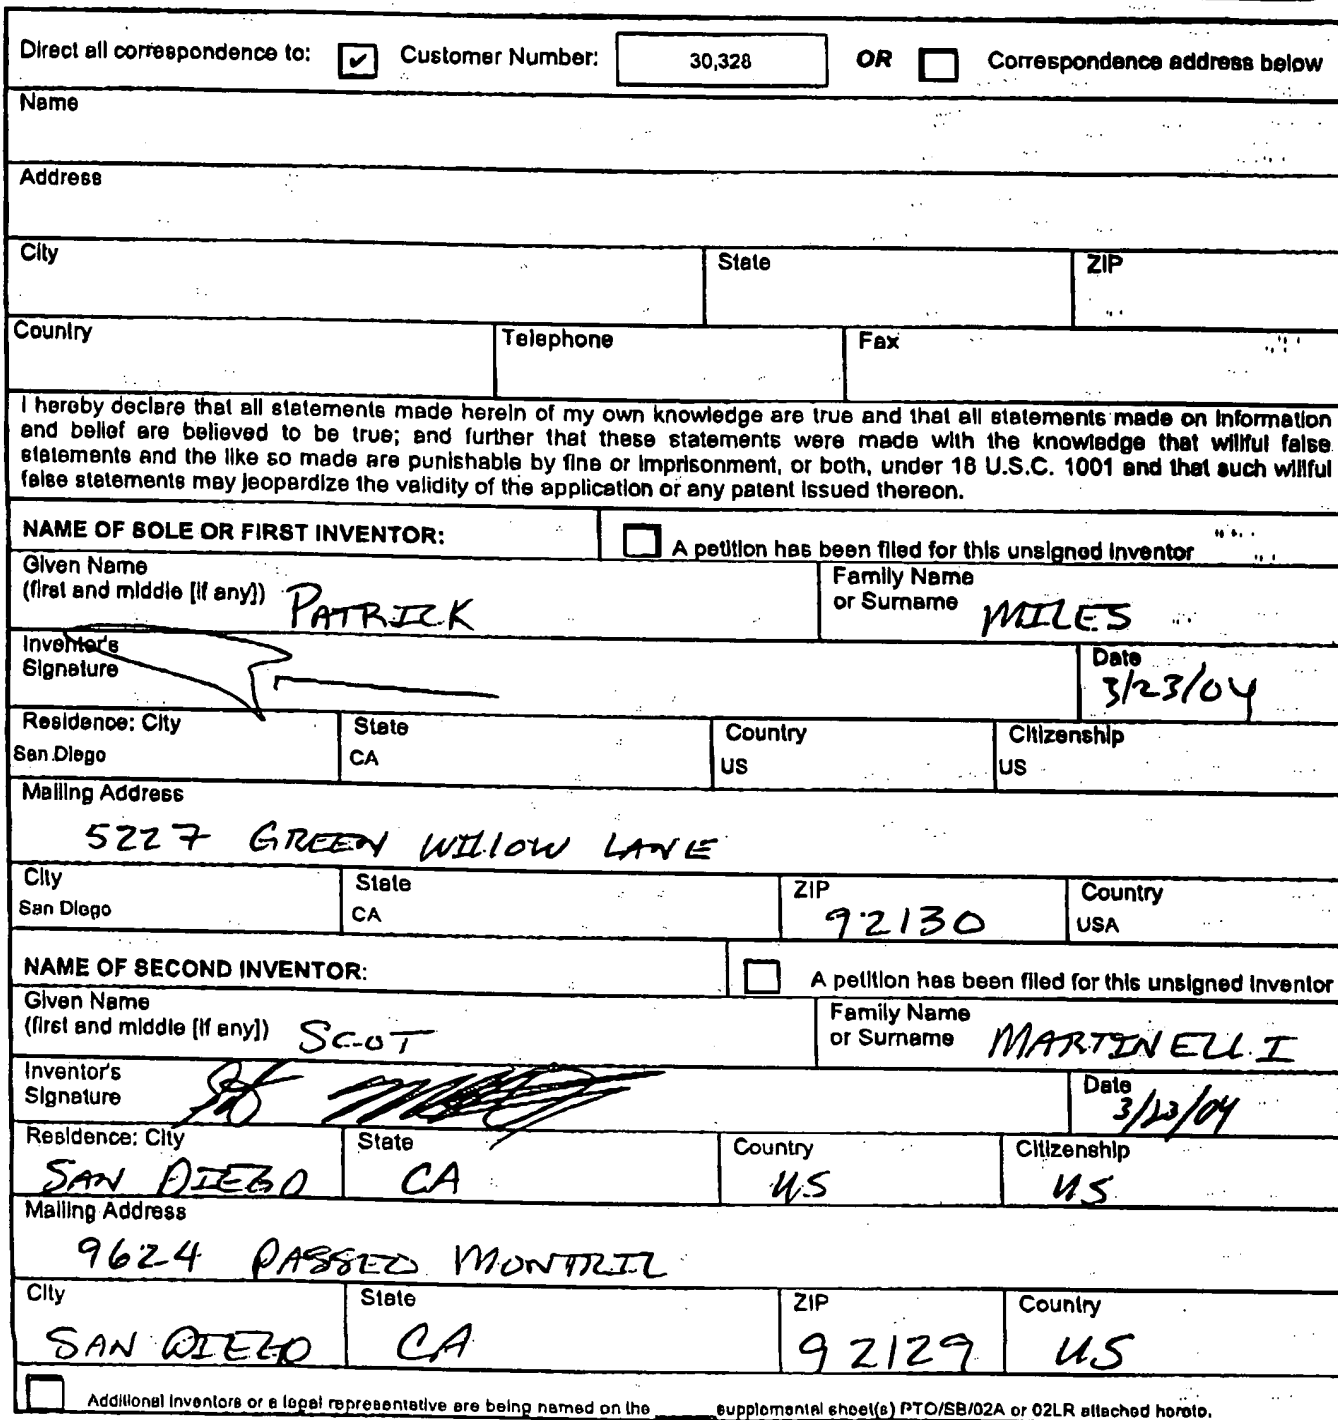 Direct all correspondence to: ✔ Customer Number: 30,328 OR Correspondence address below
Name
Address
City State ZIP
Country Telephone Fax
I hereby declare that all statements made herein of my own knowledge are true and that all statements made on information
and belief are believed to be true; and further that these statements were made with the knowledge that willful false
statements and the like so made are punishable by fine or imprisonment, or both, under 18 U.S.C. 1001 and that such willful
false statements may jeopardize the validity of the application or any patent issued thereon.
NAME OF SOLE OR FIRST INVENTOR: A petition has been filed for this unsigned inventor
Given Name Family Name
(first and middle [if any]) PATRICK or Surname MILES
Inventor's Date
Signature 3/23/04
Residence: City State Country Citizenship
San Diego CA US US
Mailing Address
5227 GREEN WILLOW LANE
City State ZIP Country
San Diego CA 92130 USA
NAME OF SECOND INVENTOR: A petition has been filed for this unsigned inventor
Given Name Family Name
(first and middle [if any]) SCOT or Surname MARTINELLI
Inventor's Date
Signature 3/23/04
Residence: City State Country Citizenship
SAN DIEGO CA US US
Mailing Address
9624 PASSEO MONTRIL
City State ZIP Country
SAN DIEGO CA 92129 US
Additional inventors or a legal representative are being named on the ____ supplemental sheet(s) PTO/SB/02A or 02LR attached hereto.